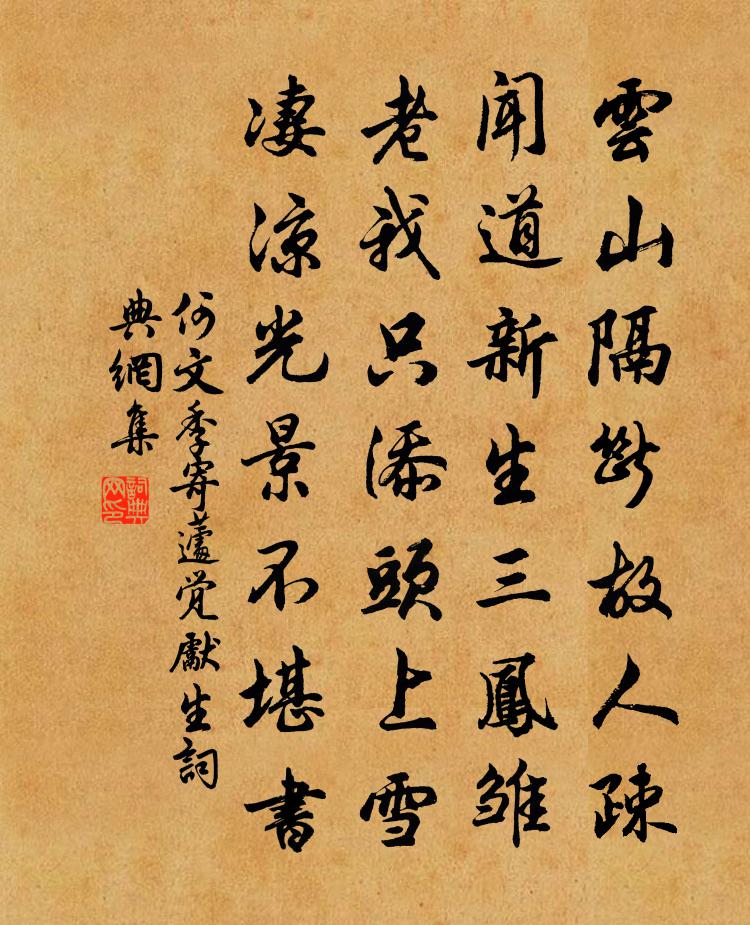 雲山隔斷故人疎
聞道新生三鳳雛
老我只添頭上雪
凄凉光景不堪書
何文季寄蘆覺獻生詞
典網集
詞典網印